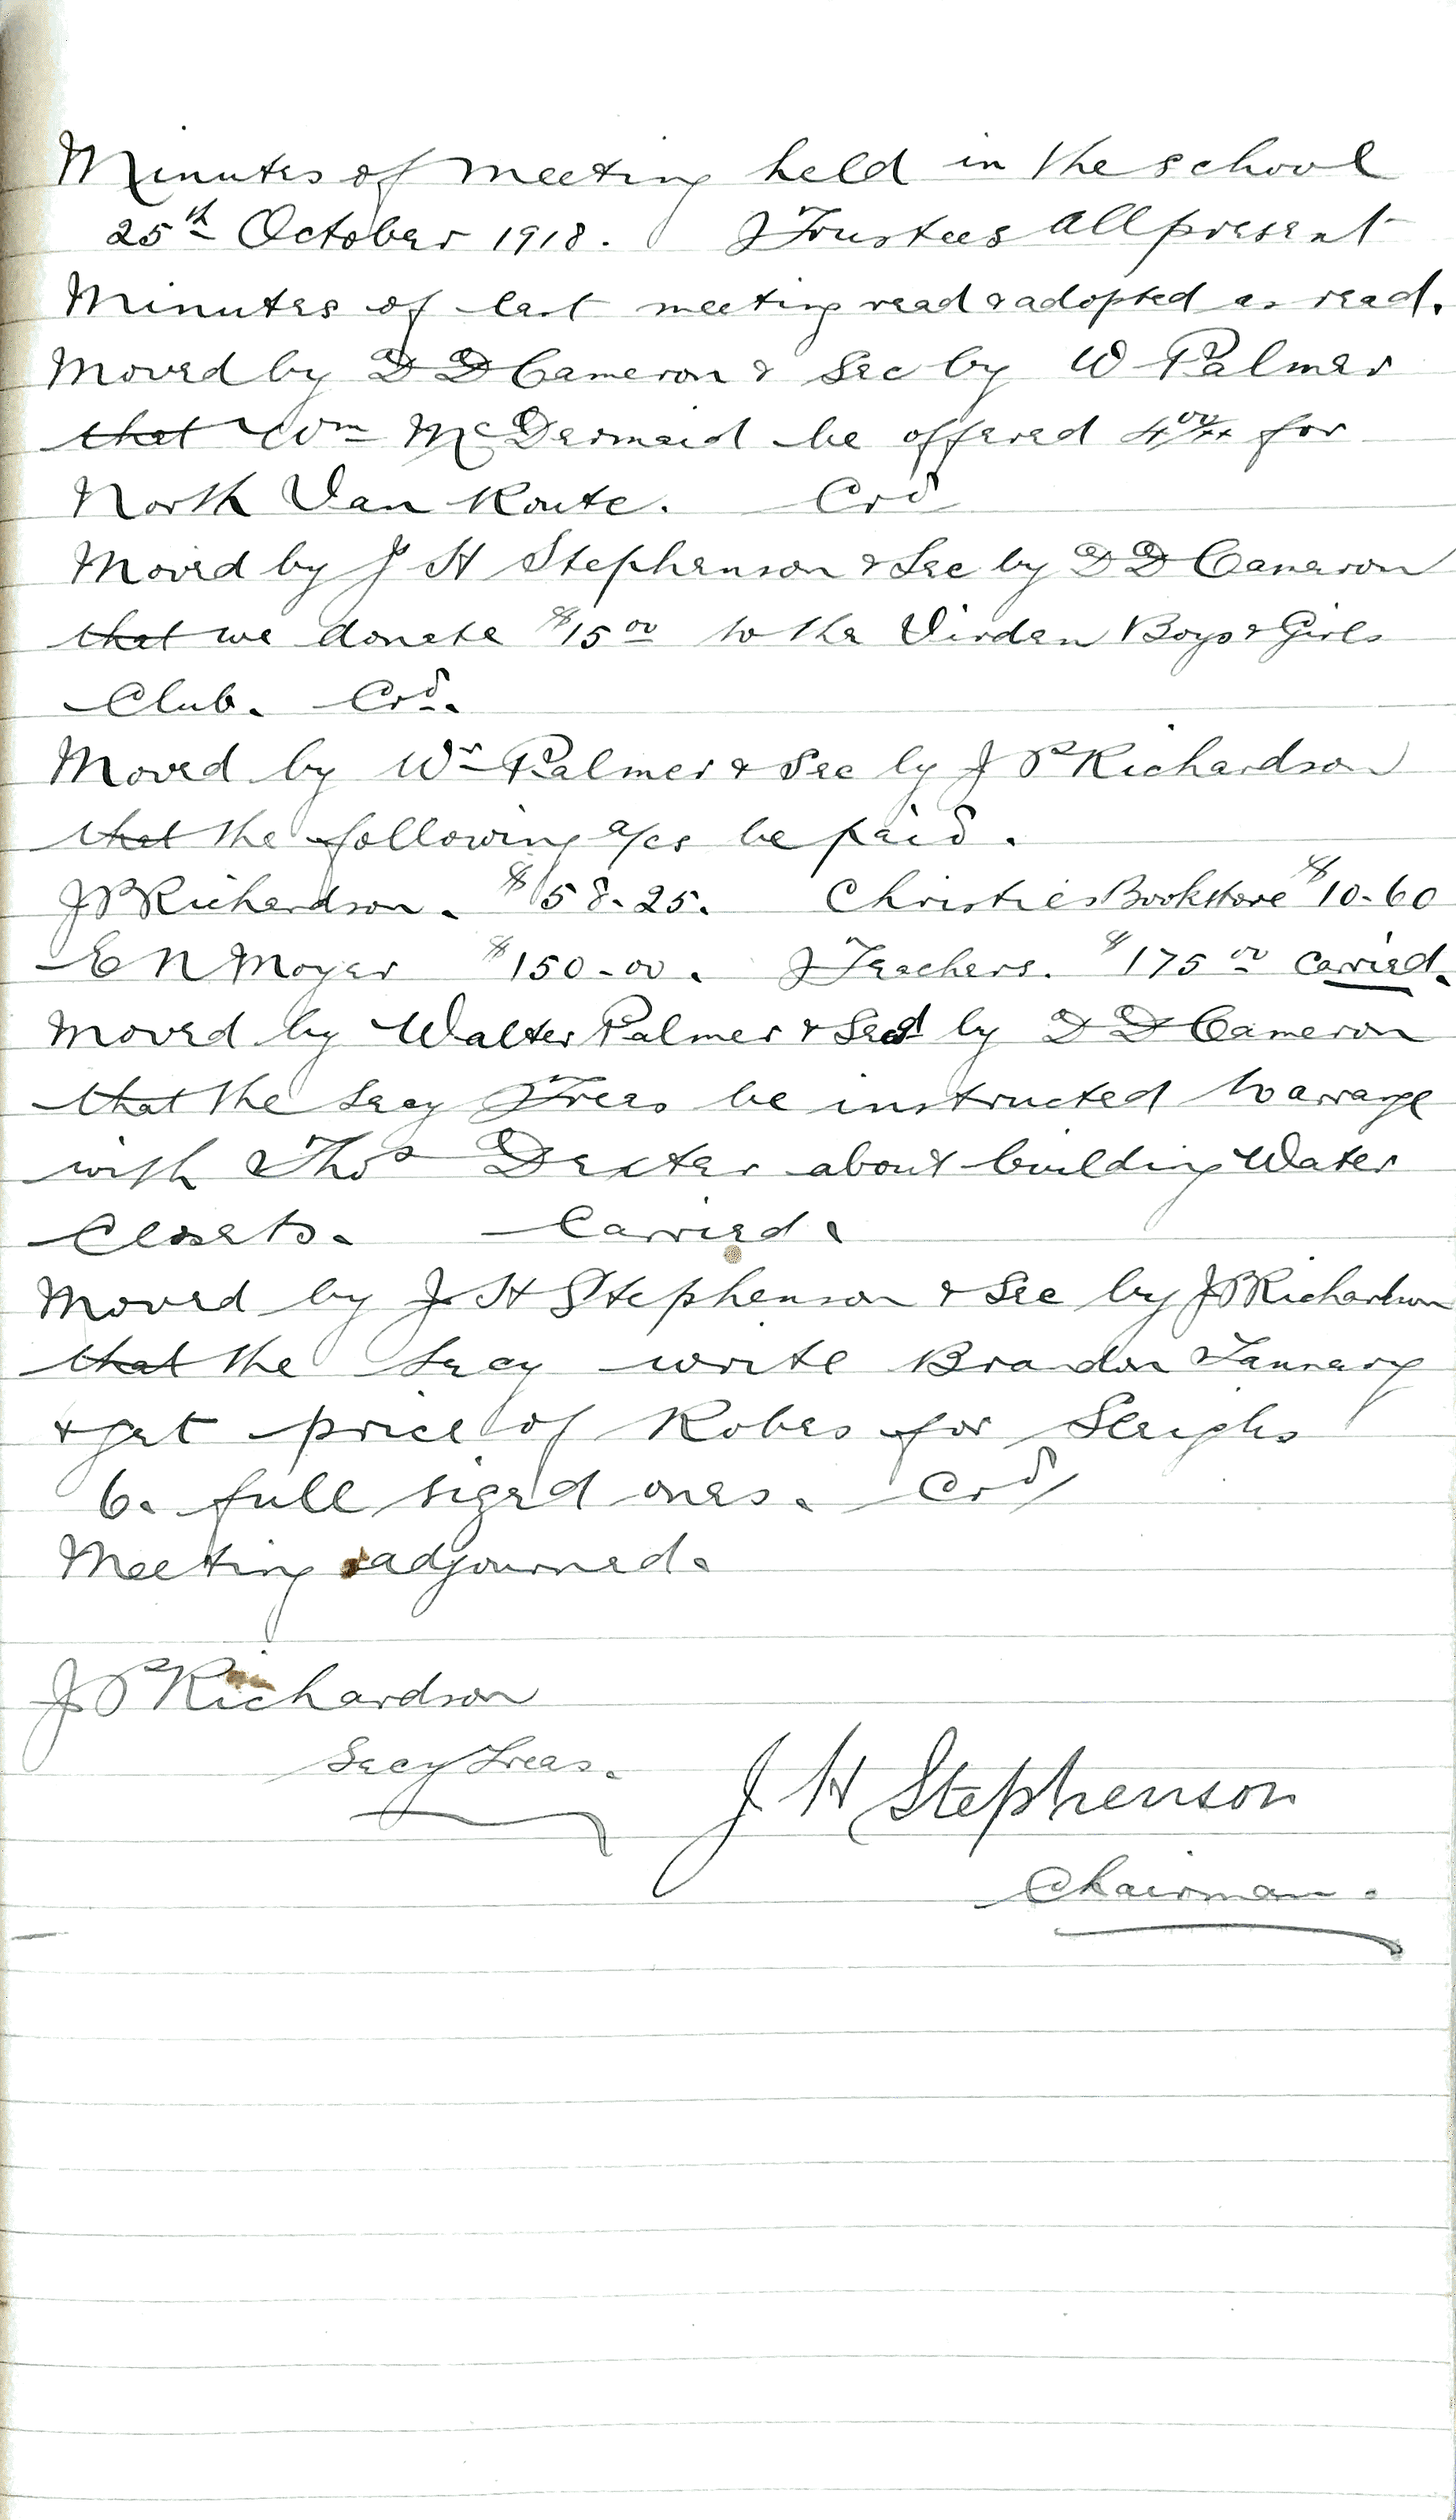 Minutes of meeting held in the school
25th October 1918. Trustees all present
Minutes of last meeting read & adopted as read.
Moved by D D Cameron & Sec by W Palmer
that Wm McDermaid be offered 4 00/xx for
North Van Route. Crd
Moved by J H Stephenson & Sec by D D Cameron
that we donate $15 00 to the Virden Boys & Girls
Club. Crd.
Moved by Wr Palmer & Sec by J P Richardson
that the following a/cs be paid.
J P Richardson. $58-25. Christie's Bookstore $10-60
E N Moyer $150-00. Teachers. $175 00 carried.
Moved by Walter Palmer & Secd by D D Cameron
that the Secy Treas be instructed to arrange
with Thos Dexter about building Water
Closets. Carried.
Moved by J H Stephenson & Sec by J P Richardson
that the Secy write Brandon Tannery
& get price of Robes for Sleighs
6. full sized ones. Crd
Meeting adjourned.
J P Richardson
Secy Treas.
J H Stephenson
Chairman.